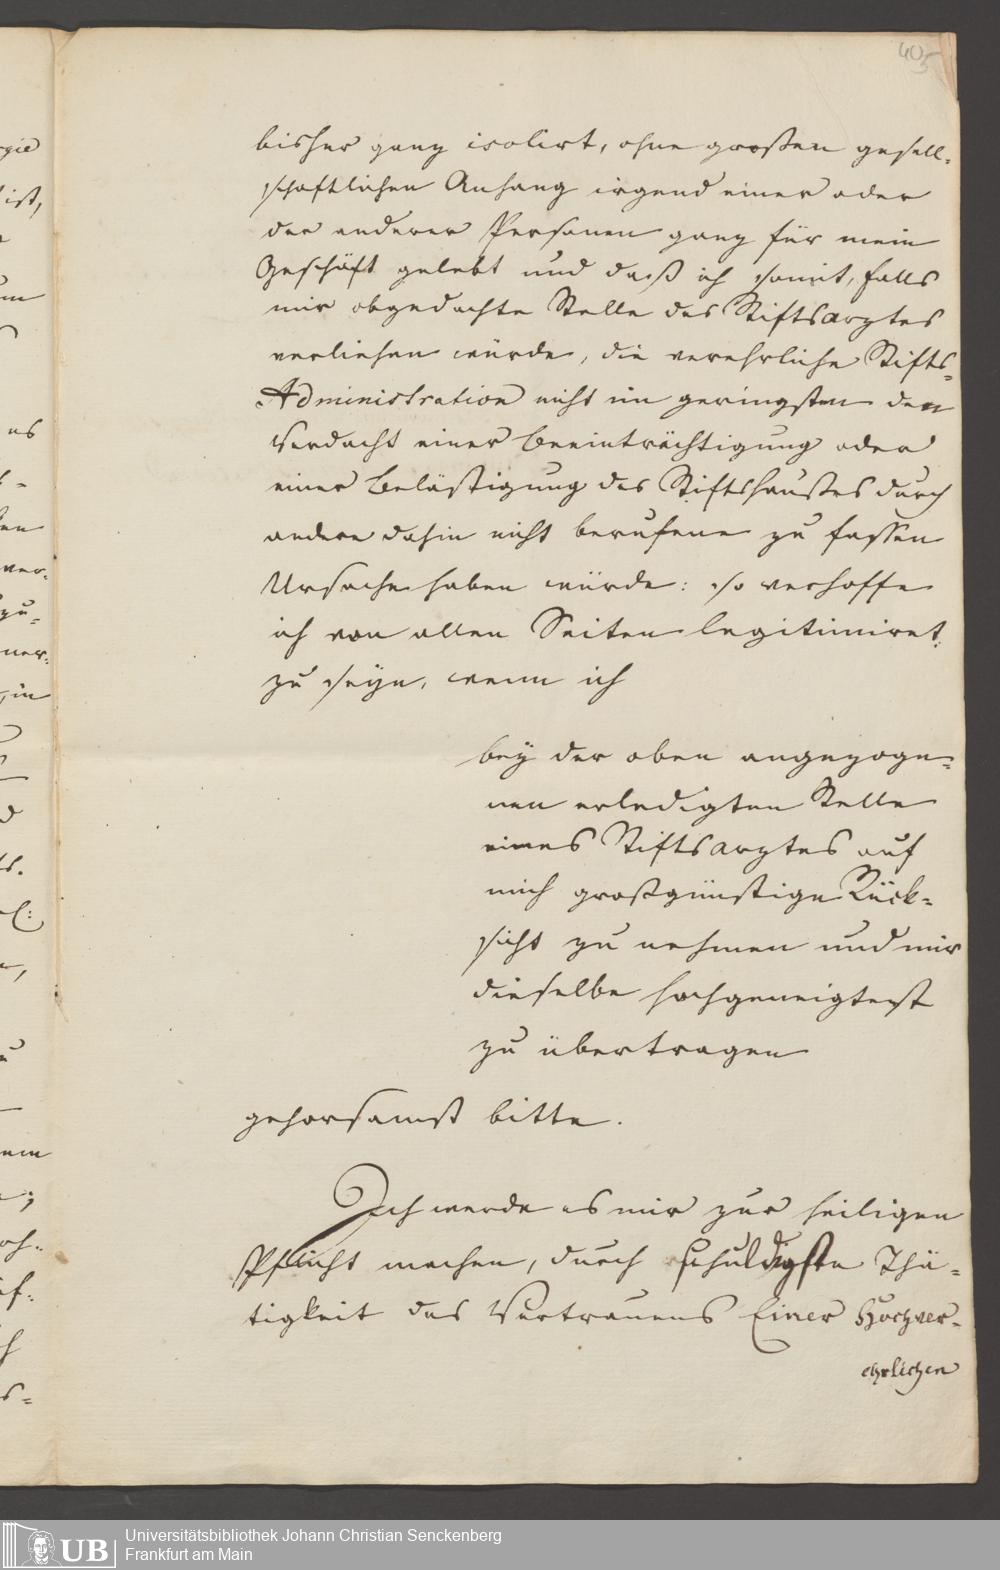 405
bisher ganz isolirt, ohne großen gesell-
schaftlichen Anhang irgend einer oder
der anderer Personen ganz für mein
Geschäft gelebt und daß ich somit, falls
mir obgedachte Stelle des Stiftsarztes
verliehen würde, die verehrliche Stifts-
Administration nicht im geringsten den
Verdacht einer Beeinträchtigung oder
einer Belästigung des Stiftshaußes durch
andere dahin nicht berufene zu fassen
Ursache haben würde: so verhoffe
ich von allen Seiten legitimiret
zu seyn, wenn ich
bey der oben angezoge-
nen erledigten Stelle
eines Stiftsarztes auf
mich großgünstige Rück-
sicht zu nehmen und mir
dieselbe hochgeneigtest
zu übertragen
gehorsamst bitte.
Ich werde es mir zur heiligen
Pflicht machen, durch schuldigste Thä-
tigkeit das Vertrauens Einer Hochver-
ehrlichen
UB
Universitätsbibliothek Johann Christian Senckenberg
Frankfurt am Main